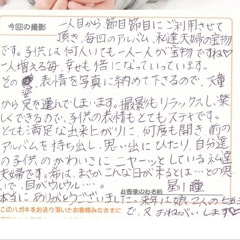 今回の撮影
一人目から節目節目にご利用させて
頂き、毎回のアルバム、私達夫婦の宝物
です。子供は何人いても一人一人が宝物ですね
一人増える毎、幸せも倍になっていっています。
その 表情を写真に納めて下さるので、
から足を運んでしまいます。撮影もリラックスし、楽し
くできるので、子供の表情もとてもステキです。
とても満足な出来上がりに、何度も開き 前の
アルバムを持ち出し、思い出にひたり、自分達
の子供のかわいさにニヤーッとしている
夫婦です。昔は、まさかこんな日が来るとは…の思い
で、目がウルウル…。 第1 
お客様のお名前
ありがとうございました。 2人の七五三
で、又おねがいします
このハガキをお送り頂いたお客様みなさまに